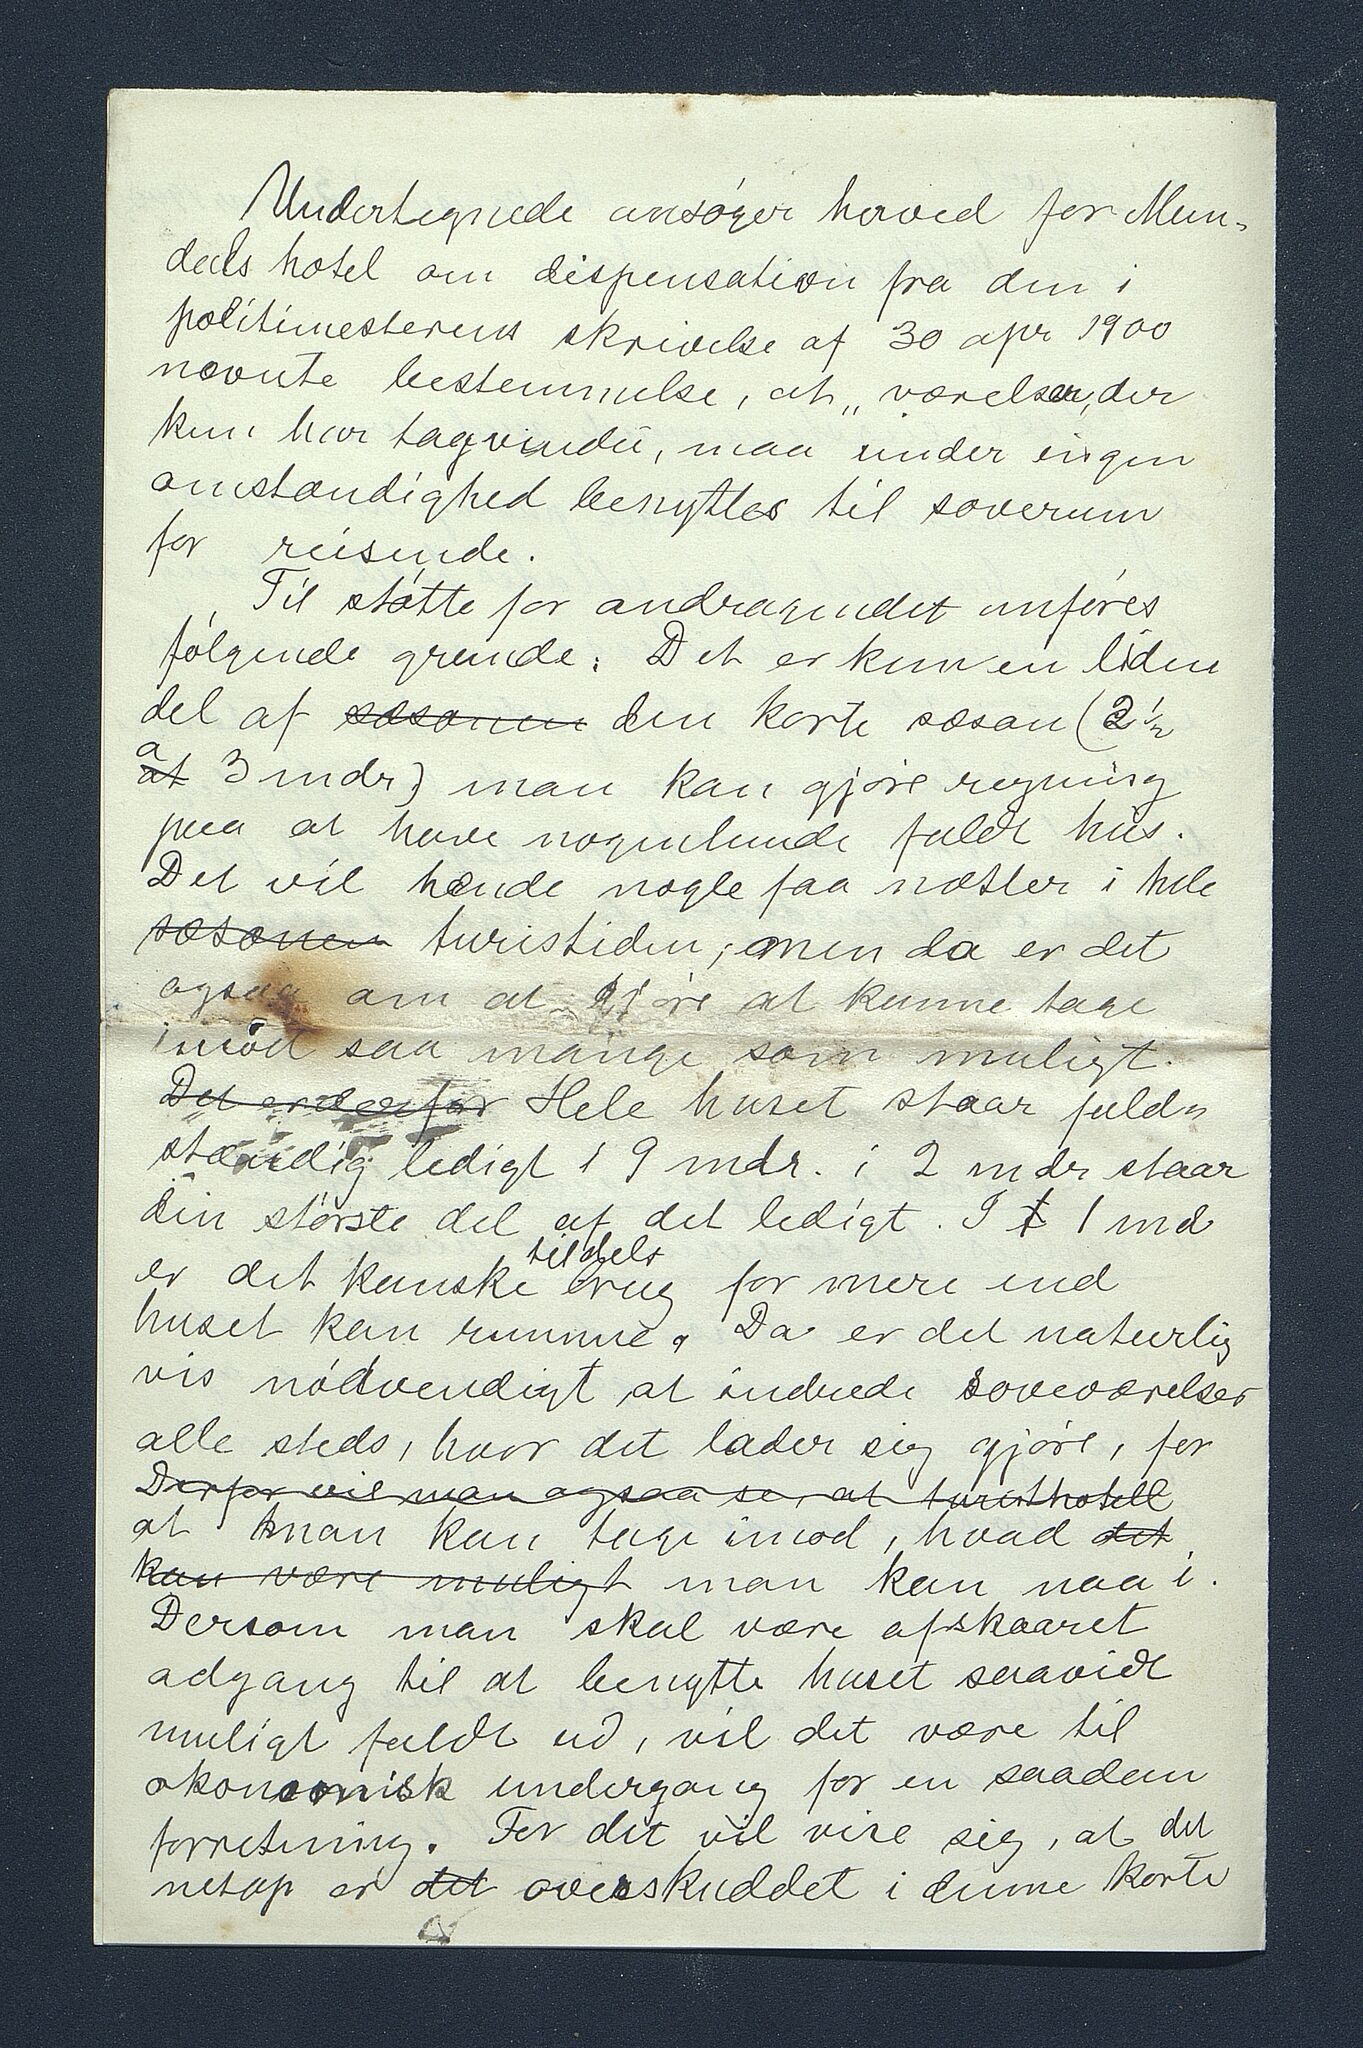 Undertegnede ansøger herved for Mun-
dals hotel om dispensation fra den i
politimesterens skrivelse af 30 apr 1900
nævnte bestemmelse, at „værelser, der
kun har tagvindu, maa under ingen
omstændighed benyttes til soverum
for reisende.
Til støtte for andragendet anføres
følgende grunde: Det er kun en liden
del af sæsonen den korte sæson (2 ½
a
at 3 mdr) man kan gjøre regning
paa at have nogenlunde fuldt hus.
Det vil hænde nogle faa nætter i hele
sæsonen turistiden; men da er det
ogsaa om at gjøre at kunne tage
imod saa mange som muligt.
Det er derfor Hele huset staar fuld-
stændig ledigt i 9 mdr. i 2 mdr staar
den største del af det ledigt. I 1 md
tildels
er det kanske brug for mere end
huset kan rumme. Da er det naturlig
vis nødvendigt at indrede soveværelser
alle steds, hvor det lader sig gjøre, for
Derfor vil man ogsaa se, at turisthotell
at man kan tage imod, hvad det
kan være muligt man kan naa i.
Dersom man skal være afskaaret
adgang til at benytte huset saavidt
muligt fuldt ud, vil det være til
økonomisk undergang for en saadan
forretning. For det vil vise sig, at det
netop er det overskuddet i denne korte